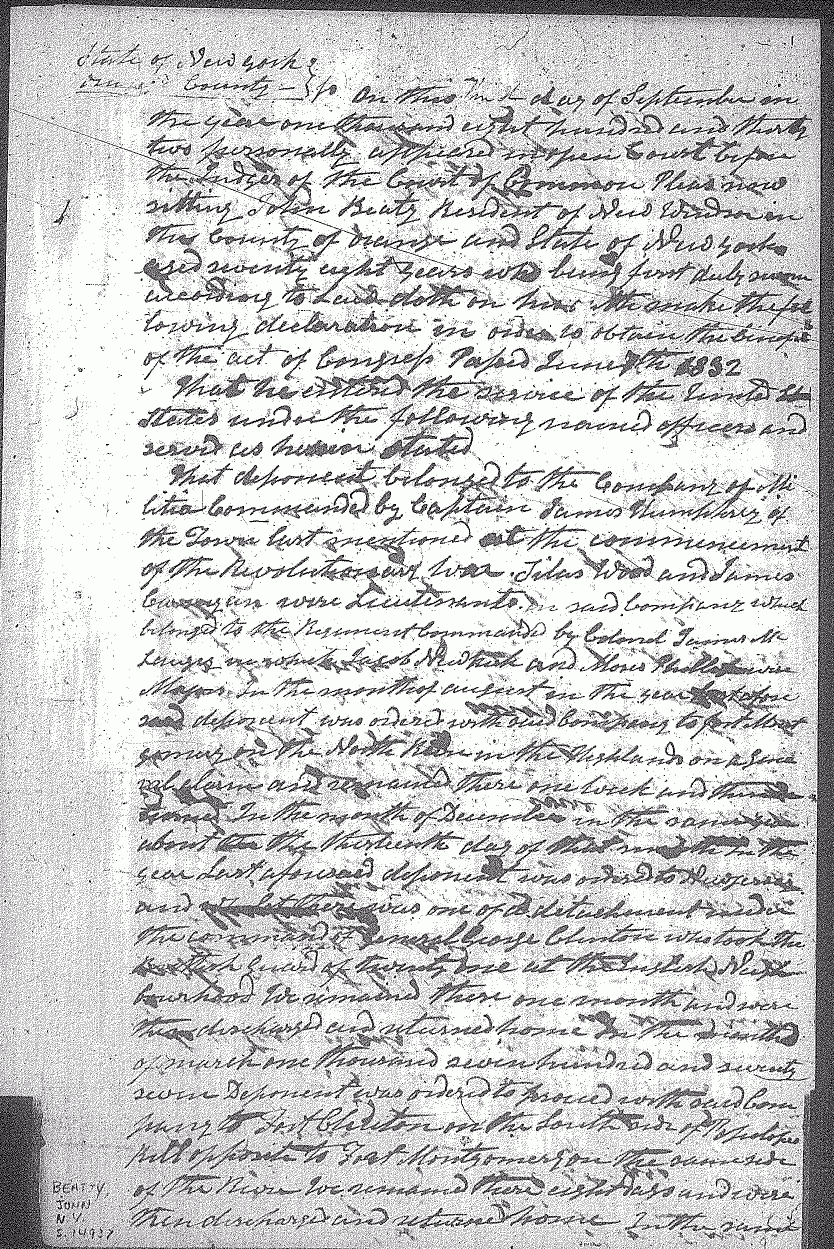 State of New york }
County — } ss On this day of September in
the year one thousand eight hundred and thirty
two personally appeared in open Court before
the Judges of the Court of Common Pleas now
sitting John Beaty Resident of New Windsor in
the County of orange and State of New york
aged seventy eight years who being first duly sworn
according to Law doth on his oath make the fol
lowing declaration in order to obtain the benefit
of the act of Congress Passed June 7th 1832
That he entered the service of the United
States under the following named officers and
served as herein stated
That deponent belonged to the Company of Mi
litia Commanded by Captain James Humphrey of
the Town last mentioned at the commencement
of the Revolutionary War. Silas Wood and James
were Lieutenants in said Company which
belonged to the Regiment Commanded by Colonel James Mc
in which Jacob Newkirk and Moses Phillips were
Majors In the month of august in the year
said deponent was ordered with said Company to fort Mont
gomery on the North River in the Highlands on a Gene
ral alarm and remained there one week and
In the month of December in the same
about the thirteenth day of that month in the
year Last aforesaid deponent was ordered to
and was one of a detachment under
the command of General George Clinton who took the
Guard of twenty one at the English Neigh
bourhood We remained there one month and were
then discharged and returned home In the month
of march one thousand seven hundred and seventy
seven Deponent was ordered to proceed with said Com
pany to Fort Clinton on the South side of Popelopes
Kill opposite to Fort Montgomery on the same side
of the River We remained there eight days and were
then discharged and returned home In the same
BEATTY,
JOHN
N.Y.
S. 14937
1